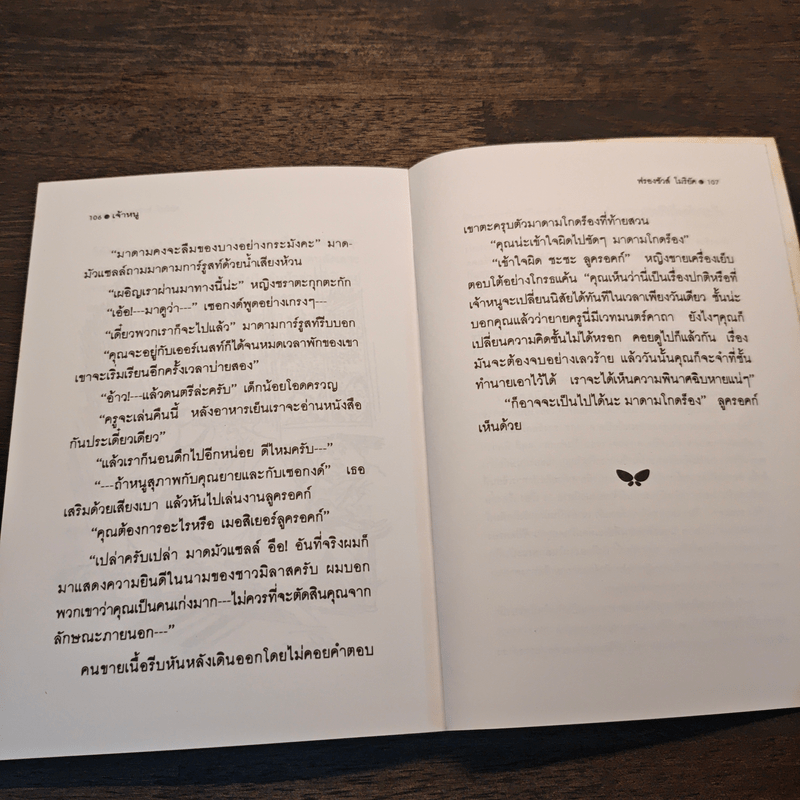 106 ● เจ้าหนู
“มาดามคงจะลืมของบางอย่างกระมังคะ” มาด-
มัวแซลล์ถามมาดามการ์รูสท์ด้วยน้ำเสียงห้วน
“เผอิญเราผ่านมาทางนี้น่ะ” หญิงชราตะกุกตะกัก
“เอ้อ!---มาดูว่า---” เซอกงต์พูดอย่างเกรงๆ---
“เดี๋ยวพวกเราก็จะไปแล้ว” มาดามการ์รูสท์รีบบอก
“คุณจะอยู่กับเออร์เนสท์ก็ได้จนหมดเวลาพักของเขา
เขาจะเริ่มเรียนอีกครั้งเวลาบ่ายสอง”
“อ้าว!---แล้วดนตรีล่ะครับ” เด็กน้อยโอดครวญ
“ครูจะเล่นคืนนี้ หลังอาหารเย็นเราจะอ่านหนังสือ
กันประเดี๋ยวเดียว”
“แล้วเราก็นอนดึกไปอีกหน่อย ดีไหมครับ---”
“---ถ้าหนูสุภาพกับคุณยายและกับเซอกงต์” เธอ
เสริมด้วยเสียงเบา แล้วหันไปเล่นงานลูครอคก์
“คุณต้องการอะไรหรือ เมอสิเยอร์ลูครอคก์”
“เปล่าครับเปล่า มาดมัวแซลล์ อือ! อันที่จริงผมก็
มาแสดงความยินดีในนามของชาวมิลาสครับ ผมบอก
พวกเขาว่าคุณเป็นคนเก่งมาก---ไม่ควรที่จะตัดสินคุณจาก
ลักษณะภายนอก---”
คนขายเนื้อรีบหันหลังเดินออกโดยไม่คอยคำตอบ
ฟรองซัวส์ โมริยัค ● 107
เขาตะครุบตัวมาดามโกดร็องที่ท้ายสวน
“คุณน่ะเข้าใจผิดไปชัดๆ มาดามโกดร็อง”
“เข้าใจผิด ชะชะ ลูครอคก์” หญิงขายเครื่องเย็บ
ตอบโต้อย่างโกรธแค้น “คุณเห็นว่านี่เป็นเรื่องปกติหรือที่
เจ้าหนูจะเปลี่ยนนิสัยได้ทันทีในเวลาเพียงวันเดียว ชั้นน่ะ
บอกคุณแล้วว่ายายครูนี่มีเวทมนตร์คาถา ยังไงๆคุณก็
เปลี่ยนความคิดชั้นไม่ได้หรอก คอยดูไปก็แล้วกัน เรื่อง
มันจะต้องจบอย่างเลวร้าย แล้ววันนั้นคุณก็จะจำที่ชั้น
ทำนายเอาไว้ได้ เราจะได้เห็นความพินาศฉิบหายแน่ๆ”
“ก็อาจจะเป็นไปได้นะ มาดามโกดร็อง” ลูครอคก์
เห็นด้วย